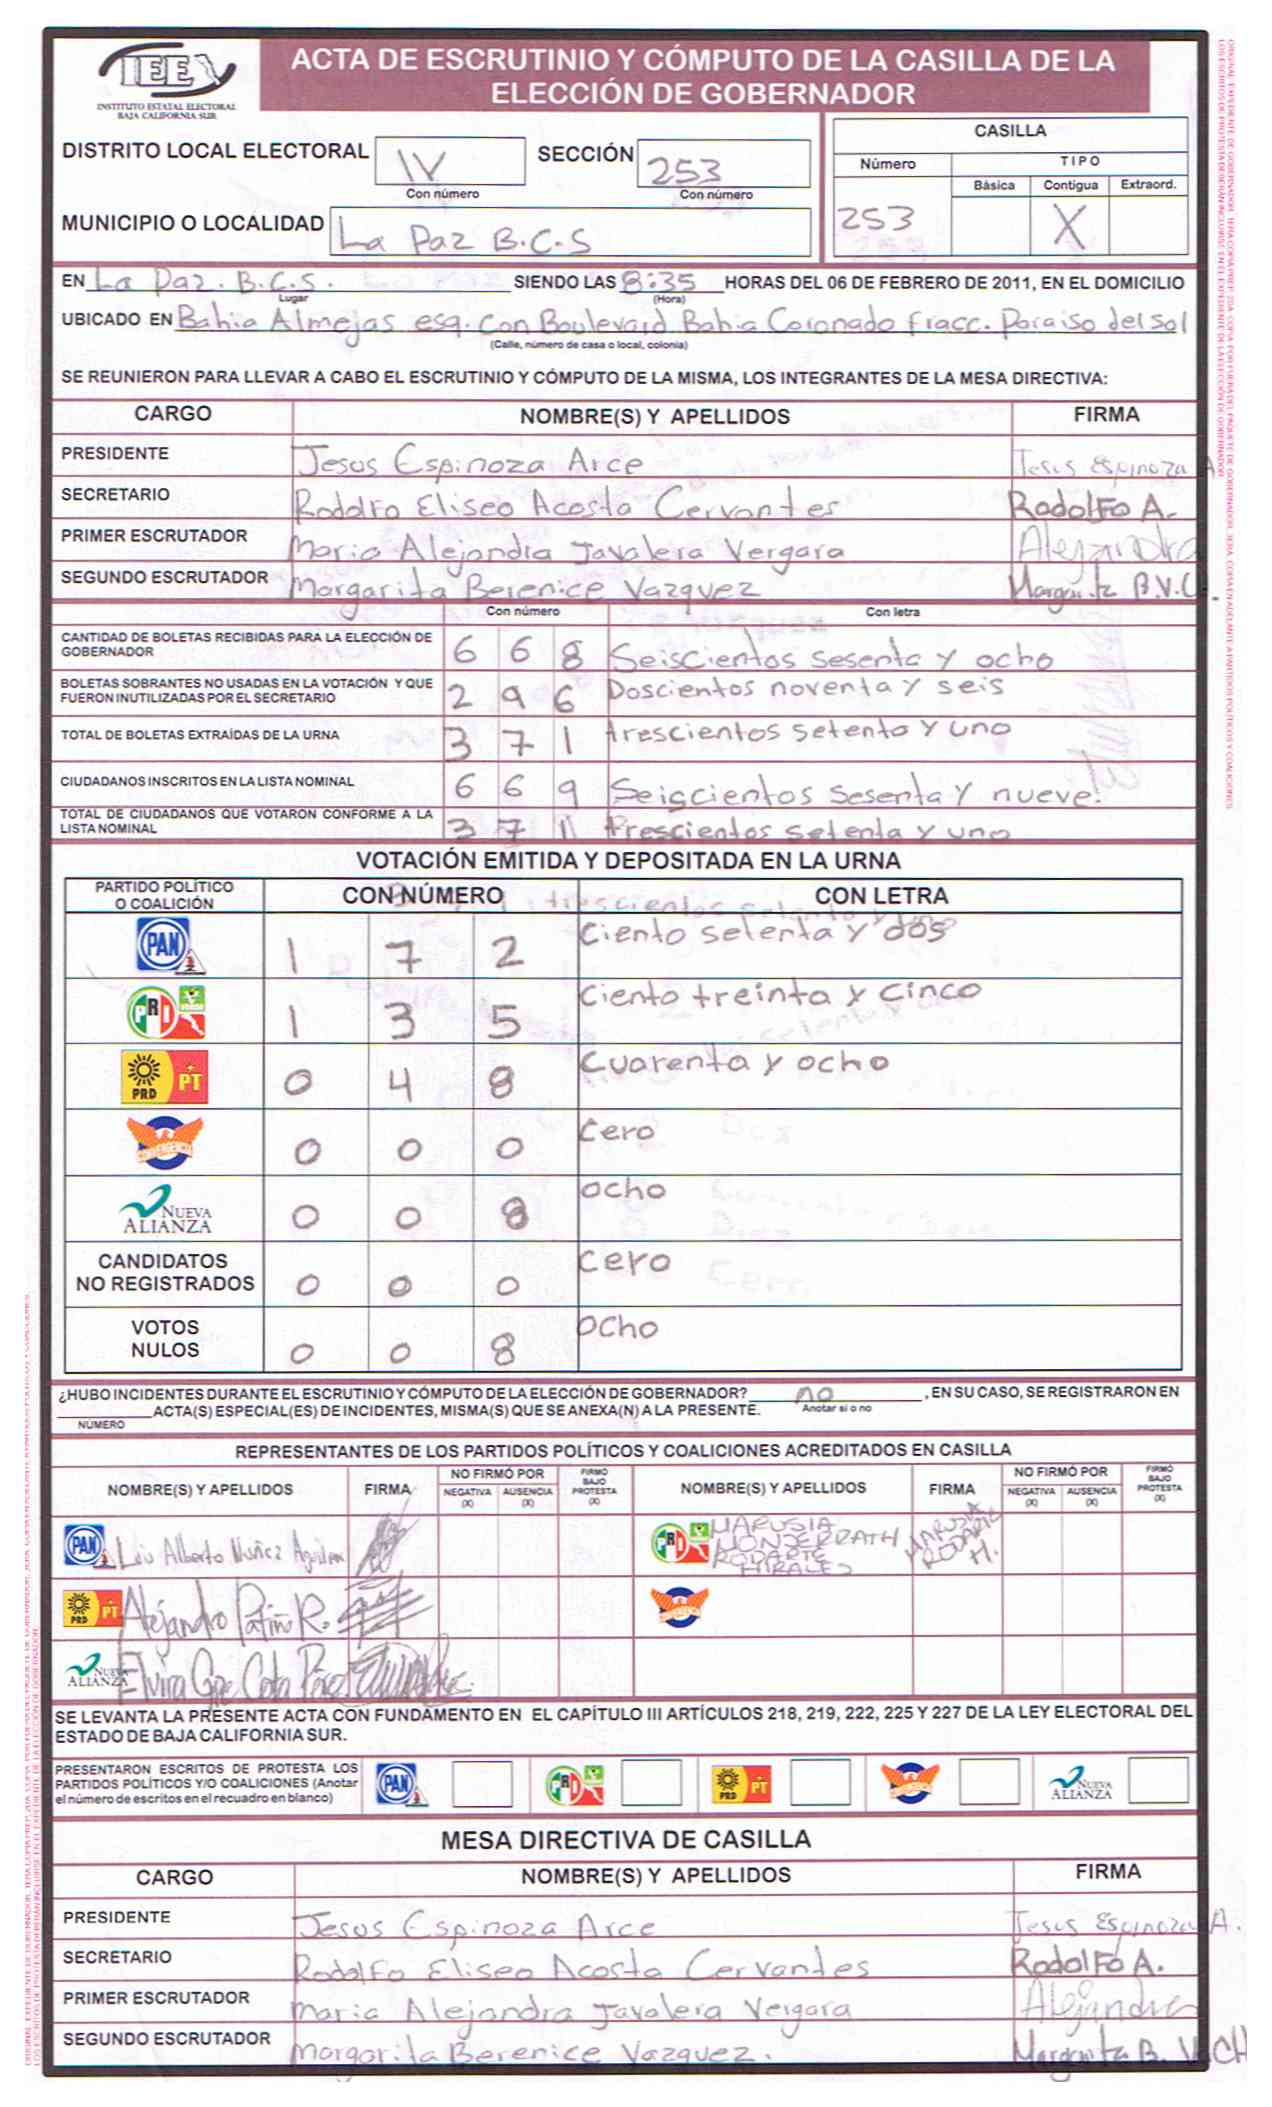 IEE
INSTITUTO ESTATAL ELECTORAL
BAJA CALIFORNIA SUR
ACTA DE ESCRUTINIO Y CÓMPUTO DE LA CASILLA DE LA
ELECCIÓN DE GOBERNADOR
DISTRITO LOCAL ELECTORAL IV SECCIÓN 253
Con número Con número
MUNICIPIO O LOCALIDAD La Paz B.C.S
CASILLA
Número TIPO
Básica Contigua Extraord.
253 X
EN La Paz. B.C.S. SIENDO LAS 8:35 HORAS DEL 06 DE FEBRERO DE 2011, EN EL DOMICILIO
Lugar (Hora)
UBICADO EN Bahia Almejas esq. con Boulevard Bahia Coronado Fracc. Paraiso del sol
(Calle, número de casa o local, colonia)
SE REUNIERON PARA LLEVAR A CABO EL ESCRUTINIO Y CÓMPUTO DE LA MISMA, LOS INTEGRANTES DE LA MESA DIRECTIVA:
CARGO NOMBRE(S) Y APELLIDOS FIRMA
PRESIDENTE Jesus Espinoza Arce Jesus Espinoza A
SECRETARIO Rodolfo Eliseo Acosta Cervantes Rodolfo A.
PRIMER ESCRUTADOR Maria Alejandra Javalera Vergara Alejandra
SEGUNDO ESCRUTADOR Margarita Berenice Vazquez Margarita B.V.
Con número Con letra
CANTIDAD DE BOLETAS RECIBIDAS PARA LA ELECCIÓN DE
GOBERNADOR 6 6 8 Seiscientos sesenta y ocho
BOLETAS SOBRANTES NO USADAS EN LA VOTACIÓN Y QUE
FUERON INUTILIZADAS POR EL SECRETARIO 2 9 6 Doscientos noventa y seis
TOTAL DE BOLETAS EXTRAÍDAS DE LA URNA 3 7 1 trescientos setenta y uno
CIUDADANOS INSCRITOS EN LA LISTA NOMINAL 6 6 9 Seiscientos sesenta y nueve!
TOTAL DE CIUDADANOS QUE VOTARON CONFORME A LA
LISTA NOMINAL 3 7 1 trescientos setenta y uno
VOTACIÓN EMITIDA Y DEPOSITADA EN LA URNA
PARTIDO POLÍTICO
O COALICIÓN CON NÚMERO CON LETRA
PAN 1 7 2 Ciento setenta y dos
PRI 1 3 5 Ciento treinta y cinco
PRD PT 0 4 8 Cuarenta y ocho
CONVERGENCIA 0 0 0 Cero
NUEVA ALIANZA 0 0 8 ocho
CANDIDATOS
NO REGISTRADOS 0 0 0 Cero
VOTOS
NULOS 0 0 8 ocho
¿HUBO INCIDENTES DURANTE EL ESCRUTINIO Y CÓMPUTO DE LA ELECCIÓN DE GOBERNADOR? no , EN SU CASO, SE REGISTRARON EN
ACTA(S) ESPECIAL(ES) DE INCIDENTES, MISMA(S) QUE SE ANEXA(N) A LA PRESENTE. Anotar si o no
NÚMERO
REPRESENTANTES DE LOS PARTIDOS POLÍTICOS Y COALICIONES ACREDITADOS EN CASILLA
NOMBRE(S) Y APELLIDOS FIRMA NO FIRMÓ POR NEGATIVA (X) AUSENCIA (X) FIRMÓ BAJO PROTESTA (X) NOMBRE(S) Y APELLIDOS FIRMA NO FIRMÓ POR NEGATIVA (X) AUSENCIA (X) FIRMÓ BAJO PROTESTA (X)
PAN Luis Alberto Nuñez Aguilar PRI MARUSIA MONSERRATH RODARTE MIRALES MARUSIA RODARTE M.
PRD PT Alejandro Patiño R. CONVERGENCIA
NUEVA ALIANZA Elvira Gpe Cota Pérez
SE LEVANTA LA PRESENTE ACTA CON FUNDAMENTO EN EL CAPÍTULO III ARTÍCULOS 218, 219, 222, 225 Y 227 DE LA LEY ELECTORAL DEL
ESTADO DE BAJA CALIFORNIA SUR.
PRESENTARON ESCRITOS DE PROTESTA LOS
PARTIDOS POLÍTICOS Y/O COALICIONES (Anotar
el número de escritos en el recuadro en blanco) PAN PRI PRD PT CONVERGENCIA NUEVA ALIANZA
MESA DIRECTIVA DE CASILLA
CARGO NOMBRE(S) Y APELLIDOS FIRMA
PRESIDENTE Jesus Espinoza Arce Jesus Espinoza A.
SECRETARIO Rodolfo Eliseo Acosta Cervantes Rodolfo A.
PRIMER ESCRUTADOR Maria Alejandra Javalera Vergara Alejandra
SEGUNDO ESCRUTADOR Margarita Berenice Vazquez. Margarita B. V.CH